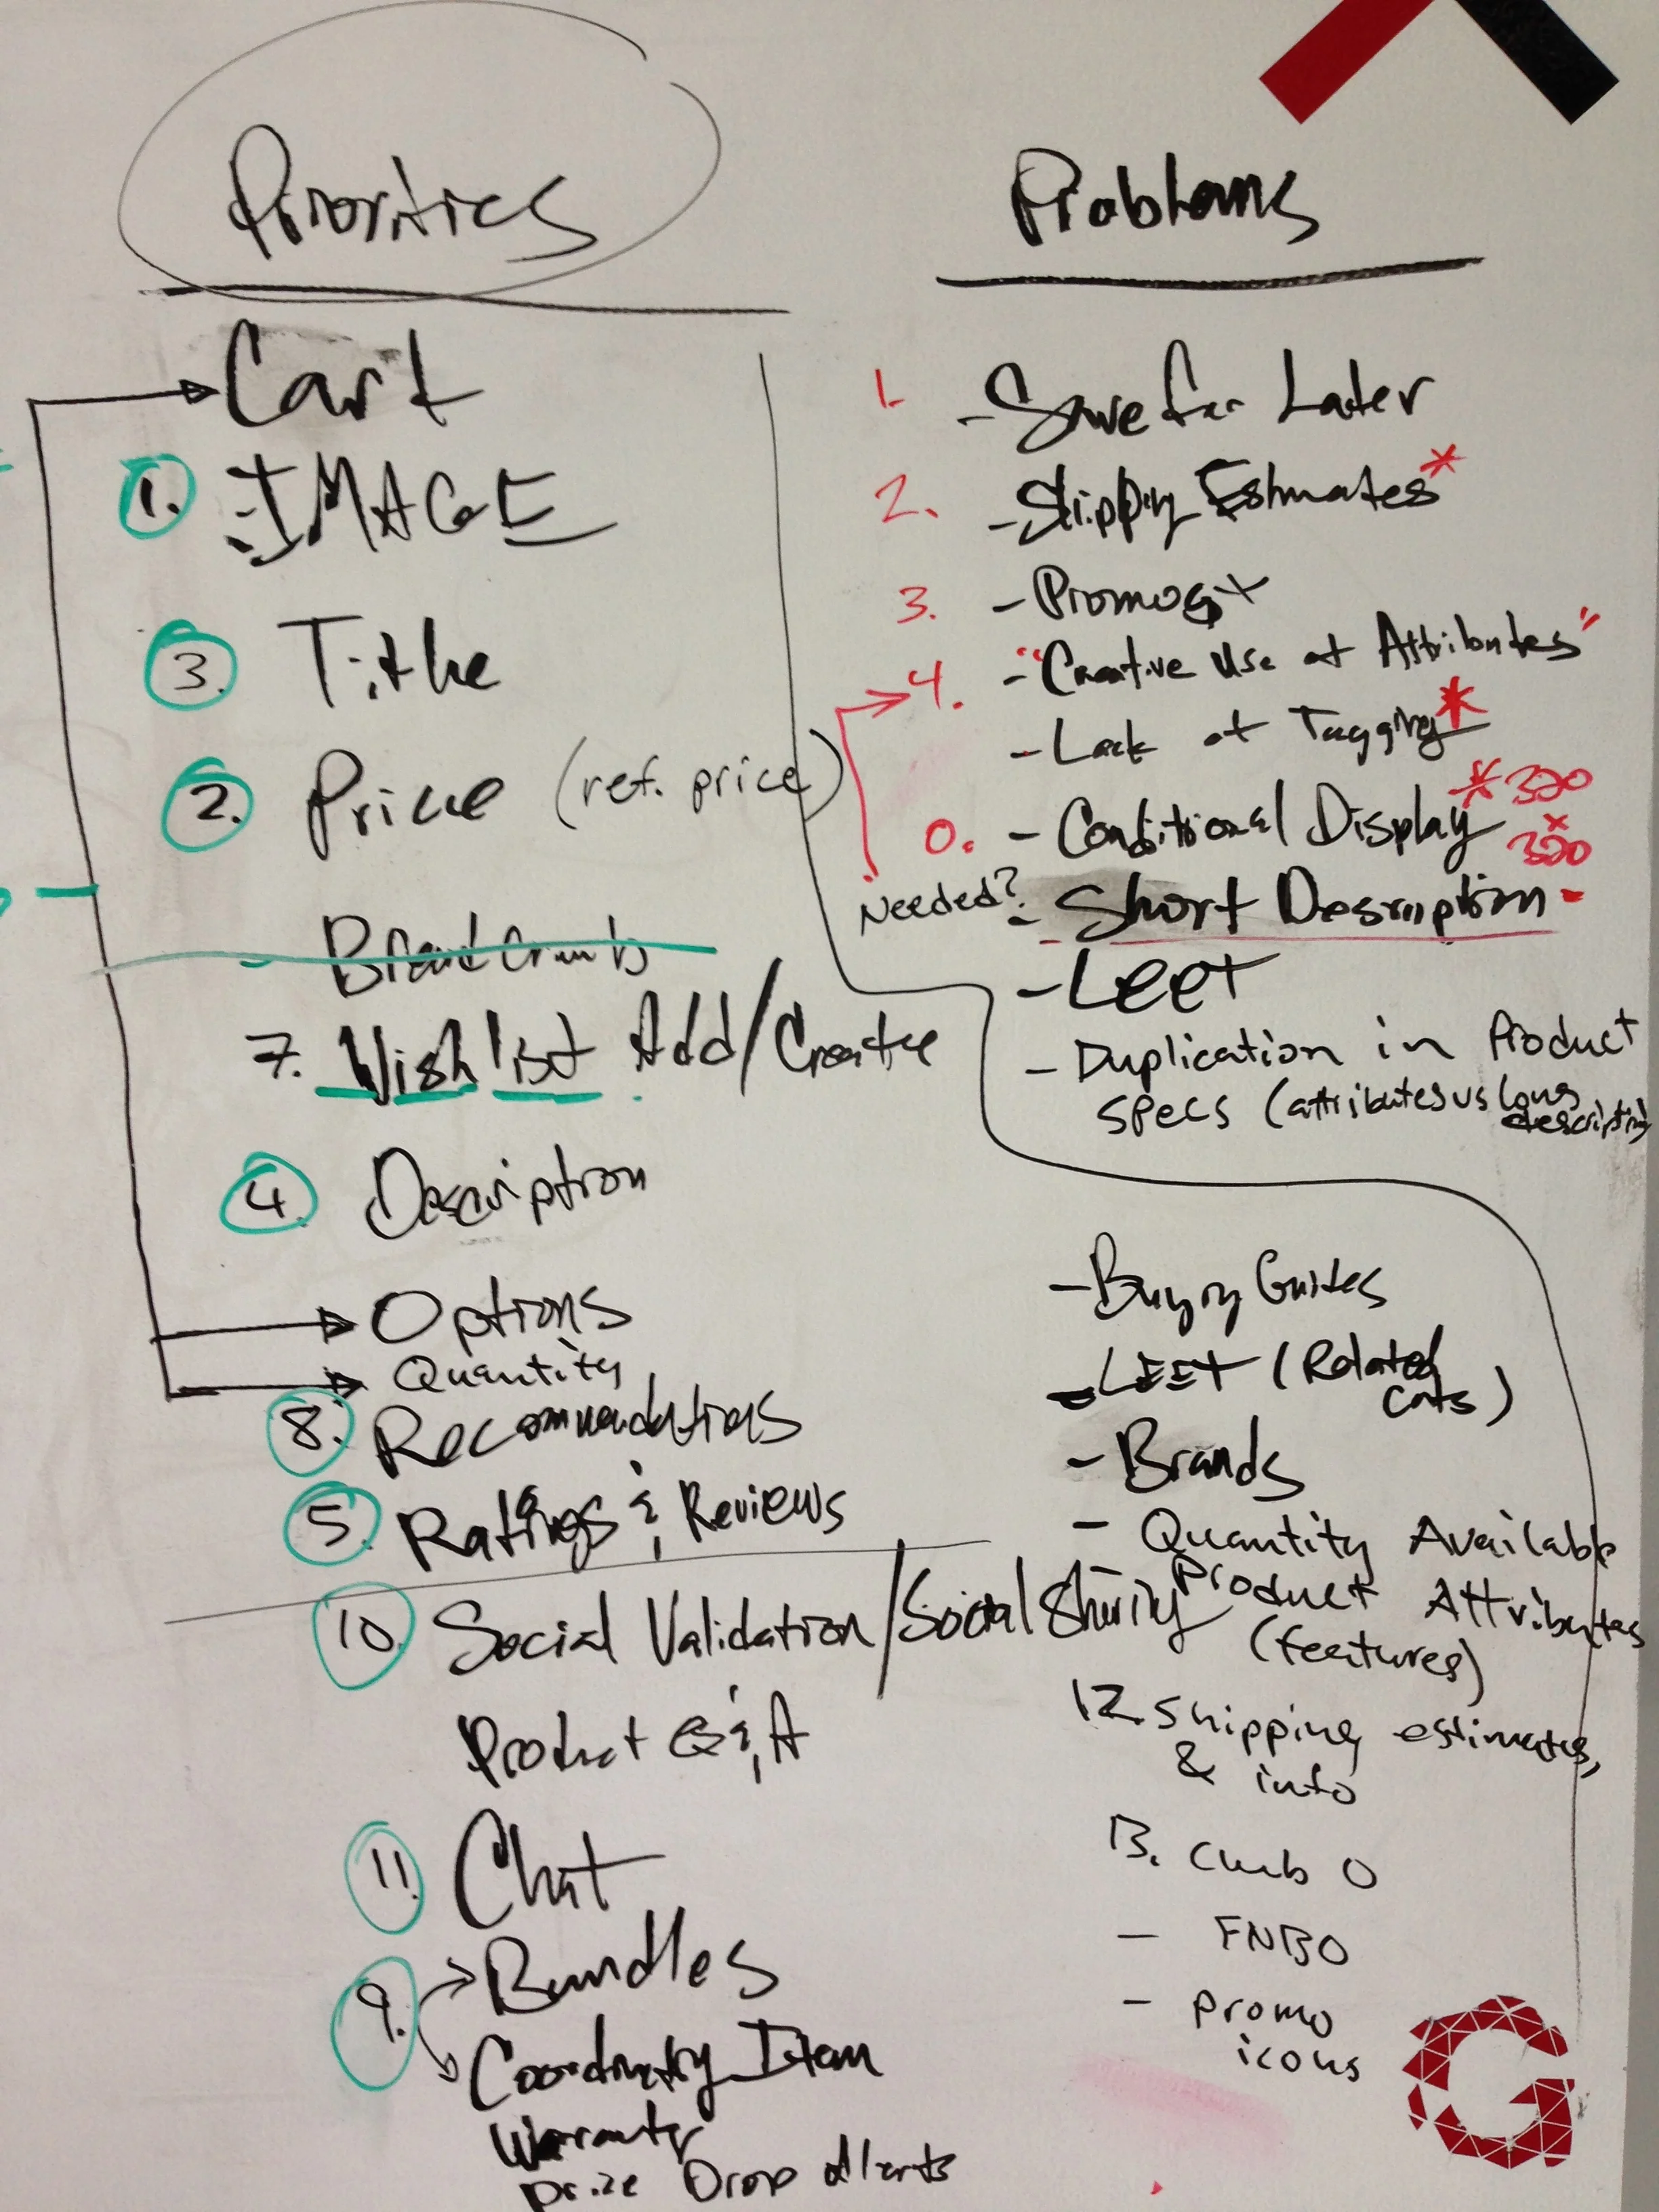 Priorities
Cart
1. IMAGE
3. Title
2. Price (ref. price)
- Breadcrumbs
7. Wishlist Add/Create
4. Description
Options
Quantity
8. Recommendations
5. Ratings & Reviews
10. Social Validation/Social Sharing
Product Q & A
11. Chat
9. Bundles
Coordinating Item
Warranty
Price Drop Alerts
Problems
1. - Save for Later
2. - Shipping Estimates*
3. - Promos
4. - "Creative Use of Attributes"
- Lack of Tagging*
0. - Conditional Display * 320
x
320
Needed? - Short Description -
- Leet
- Duplication in Product
specs (attributes vs long
description)
- Buying Guides
- LEET (Related
Cats)
- Brands
- Quantity Available
Product Attributes
(features)
12. Shipping estimates,
& info
13. Club O
- FNBO
- promo
icons
G